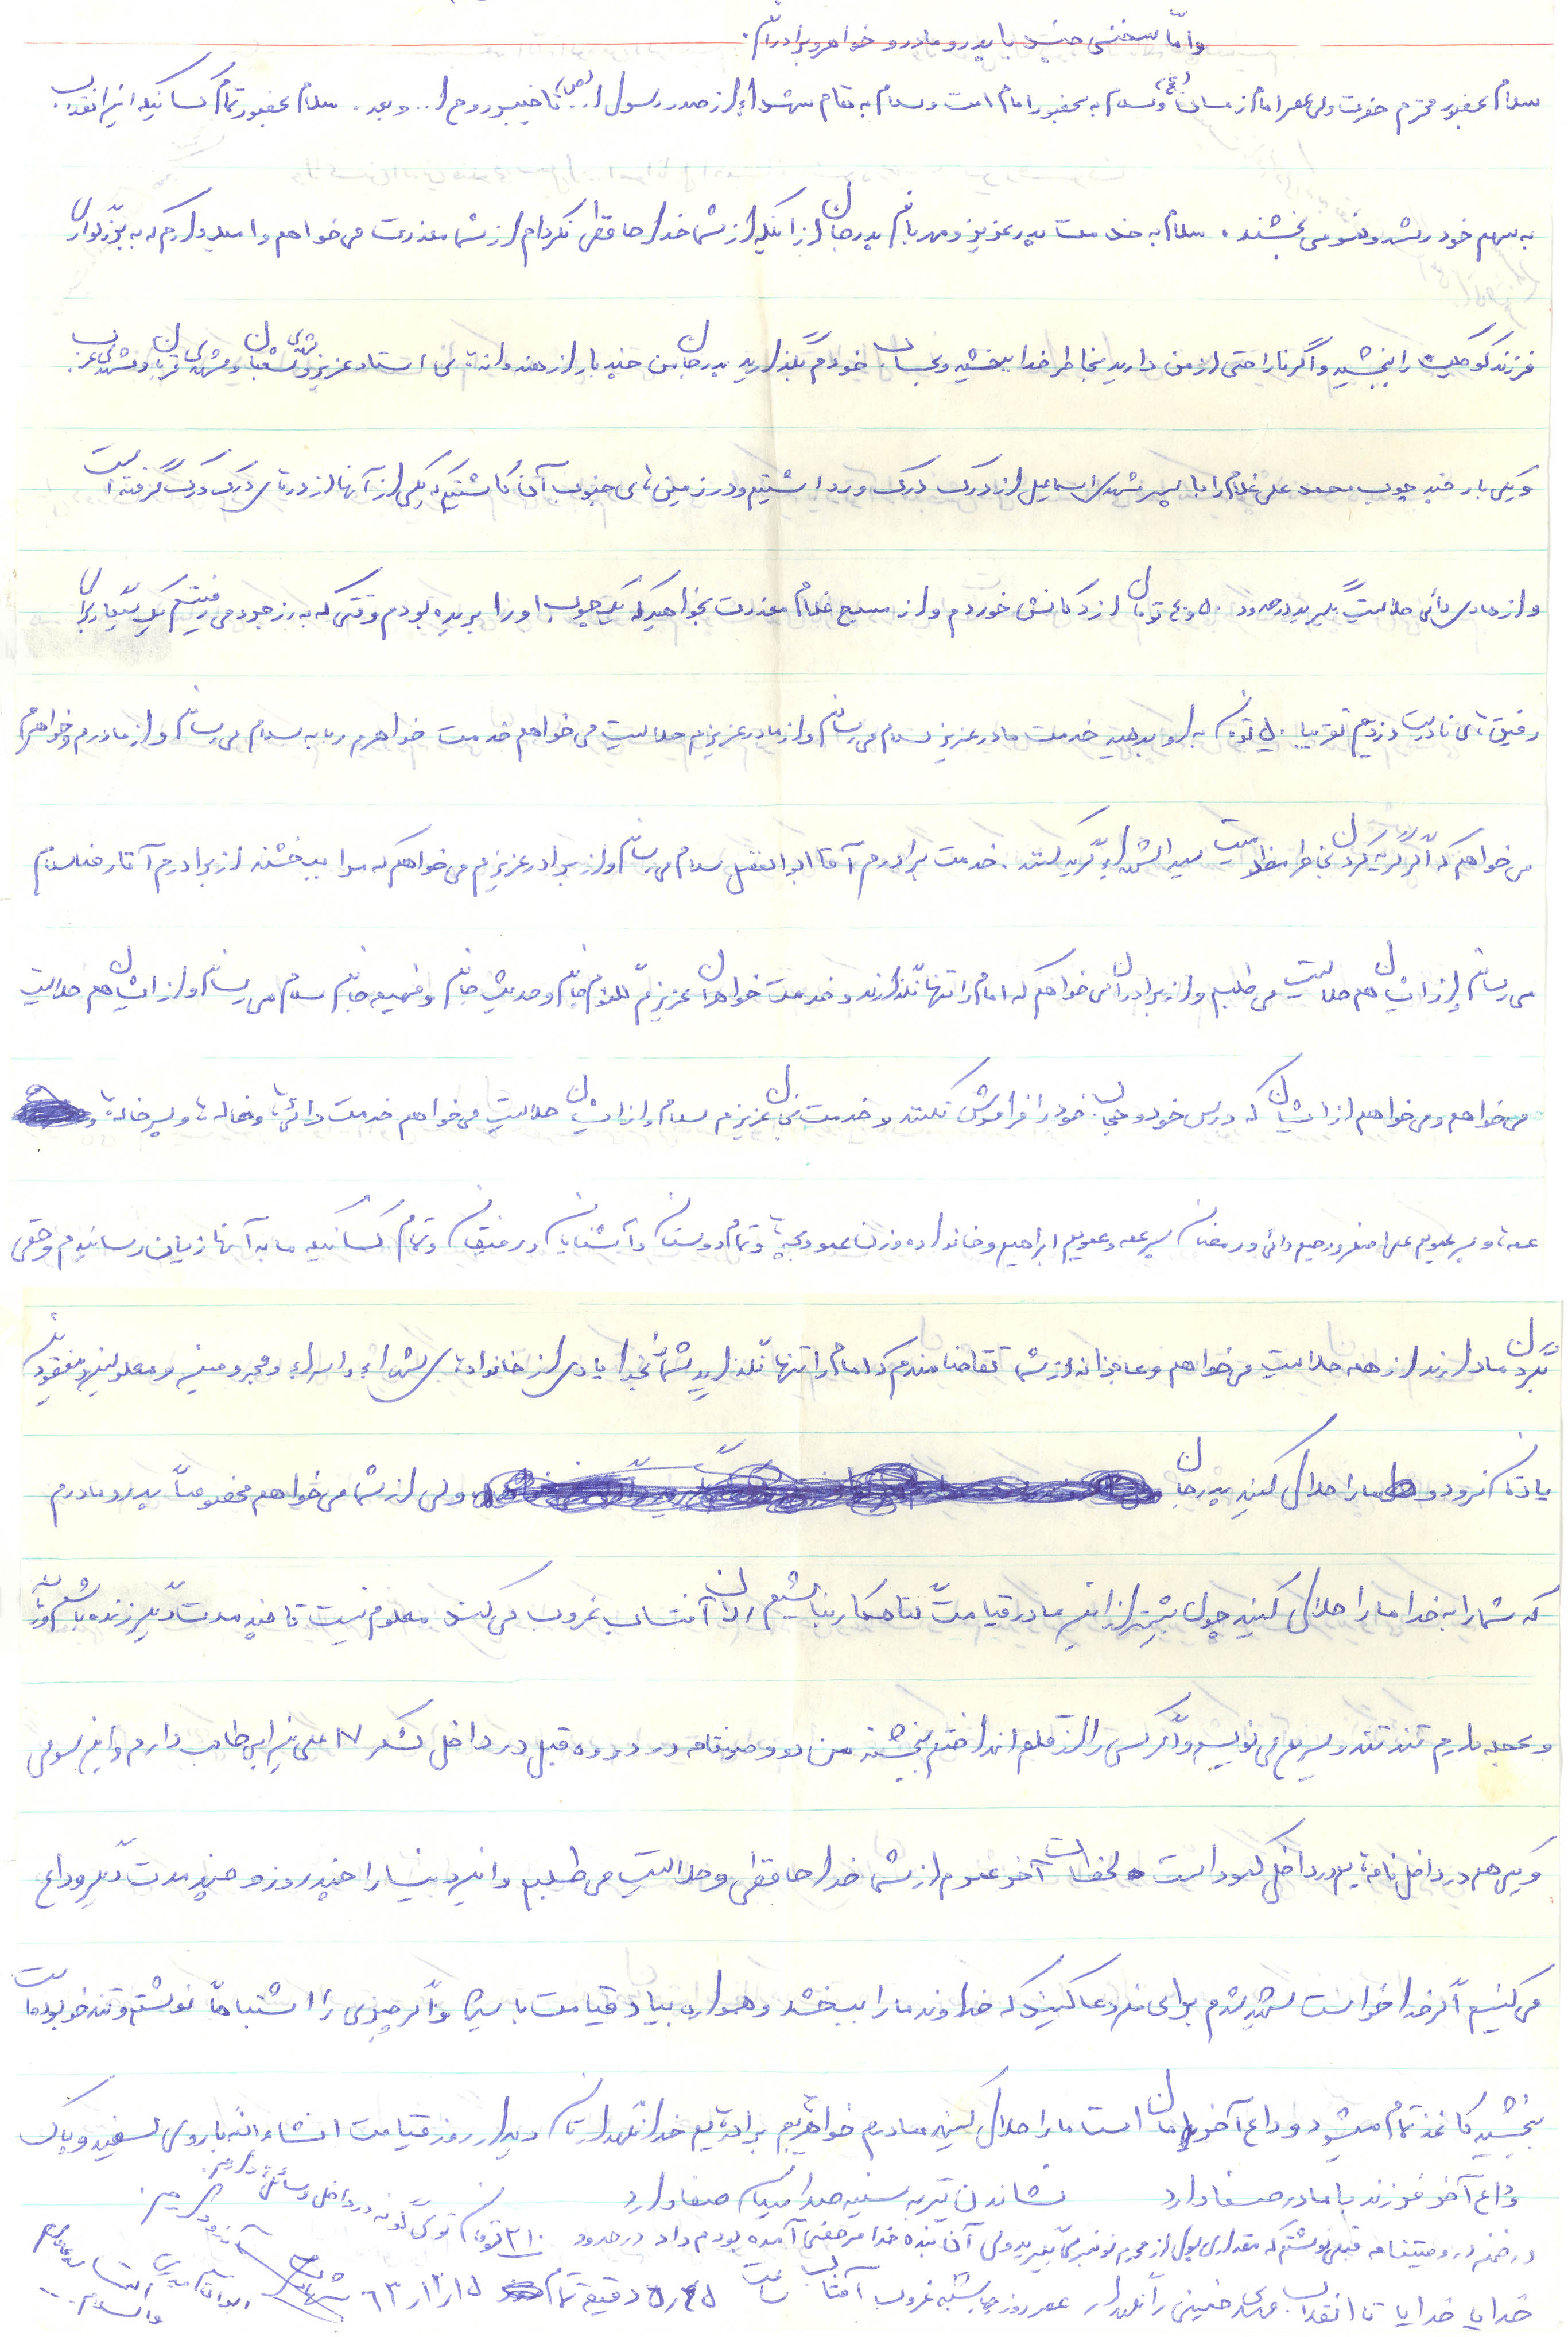 و امّا سخنی چند با پدر و مادر و خواهر و برادرانم.
سلام بحضور محترم حضرت ولی عصر امام زمان (عج) و سلام به بحضور امام امت و سلام به مقام شهداء از صدر رسول ا.. (ص) تا خیبر روح ا.. و بعد. سلام بحضور تمام کسانیکه این انقلاب
به سهم خود رشد و نمو می بخشند. سلام به خدمت پدر عزیز و مهربانم پدرجان از اینکه از شما خداحافظی نکردم از شما معذرت می خواهم و امیدوارم که به بزرگواریتان
فرزند کوچکیت را ببخشید و اگر ناراحتی از من دارید بخاطر خدا ببخشید و بحساب خودم بگذارید پدرجان من چند بار از هندوانه های استاد عزیز و مشهدی شعبان و مشهدی قربان و مشهدی عزیز
و یکی بار چند چوب محمد علی غلام را با پسر مشهدی اسماعیل از درک درک ورداشتیم و در زمین های جنوب آن گاشتیم که یکی از آنها از دره های درک درک گرفته است
و از هادی دائی حلالیت بگیرید در حدود ۵۰ و ۴۰ تومان از دکانش خوردم و از مسیح غلام معذرت بخواهید که یک چوب او را بریده بودم وقتی که به رزجرد می رفتیم یک سیگار برای
رفیق های نادرست دزدیم تقریبا ۵۰ تومان به او بدهید خدمت مادر عزیز سلام می رسانم و از مادر عزیزم حلالیت می خواهم خدمت خواهرم ربابه سلام می رسانم و از مادرم و خواهرم
می خواهم که اگر گریه کردن بخاطر مظلومیت سیدالشهداء گریه کنند. خدمت برادرم آقا ابوالفضل سلام می رسانم و از برادر عزیزم می خواهم که مرا ببخشند از برادرم آقا رضا سلام
می رسانم از ایشان هم حلالیت می طلبم و از برادران می خواهم که امام را تنها نگذارند و خدمت خواهران عزیزم کلثوم خانم و صدیقه خانم و فهیمه خانم سلام می رسانم و از ایشان هم حلالیت
می خواهم و می خواهم از ایشان که درس خود و حجاب خود را فراموش نکنند و خدمت عزیزم سلام و از ایشان حلالیت می خواهم خدمت دائی ها و خاله ها و پسر خاله ها و
عمه ها و پسر عمویم علی اصغر و رحیم دائی و رمضان پسر عمه و عمویم ابراهیم و خانواده و زن عمو و بچه ها و تمام دوستان و آشنایان و رفیقان و تمام کسانیکه ما به آنها زیان رساندیم و حقی
بگردن ما دارند از همه حلالیت می خواهم و عاجزانه از شما تقاضا مندم که امام را تنها نگذارید شما را بخدا یادی از خانواده های شهداء و اسراء و مجروحین و معلولین و مفقودین
یادتان نرود و ما را حلال کنید پدرجان ولی از شما می خواهم مخصوصاً پدر و مادرم
که شما را به خدا ما را حلال کنید چون بیشتر از این ما در قیامت گناهکار نباشیم الان آفتاب غروب می کند معلوم نیست تا چند مدت دیگر زنده باشم
و عجله دارم تند تند و سریع می نویسم و اگر کسی را از قلم انداختم ببخشند من دو وصیتنامه در دوره قبل در داخل لشکر ۱۷ علی بن ابی طالب دارم و این سومی
و یکی هم در داخل نامه هایم در داخل کمد است لحظات آخر عمرم از شما خداحافظی و حلالیت می طلبم و این دنیا را چند روز و چند مدت دیگر وداع
می کنیم اگر خدا خواست شهید شدم برای من دعا کنید که خداوند ما را ببخشد و همواره بیاد قیامت باشید و اگر چیزی را اشتباهاً نوشتم و تند خو بوده است
ببخشید کاغذ تمام میشود و وداع آخرمان است ما را حلال کنید مادرم خواهرهایم برادرهایم خدا نگهدارتان دیدار روز قیامت انشاءالله با روی سفید و پاک
وداع آخر فرزند با مادر صفا دارد نشاندن تیر به سینه صفا دارد
در ضمن در وصیتنامه قبلی نوشتم که مقداری پول از محرم نوذر بگیرید ولی آن بنده خدا مرخصی آمده بودم داد در حدود ۲۱۰ تومان توی گونه در داخل وسائل دارم.
خدایا خدایا تا انقلاب مهدی خمینی را نگهدار عصر روز چهارشنبه غروب آفتاب ساعت ۵ و ۴۵ دقیقه تمام ۱۵/۱۲/۶۳
والسلام